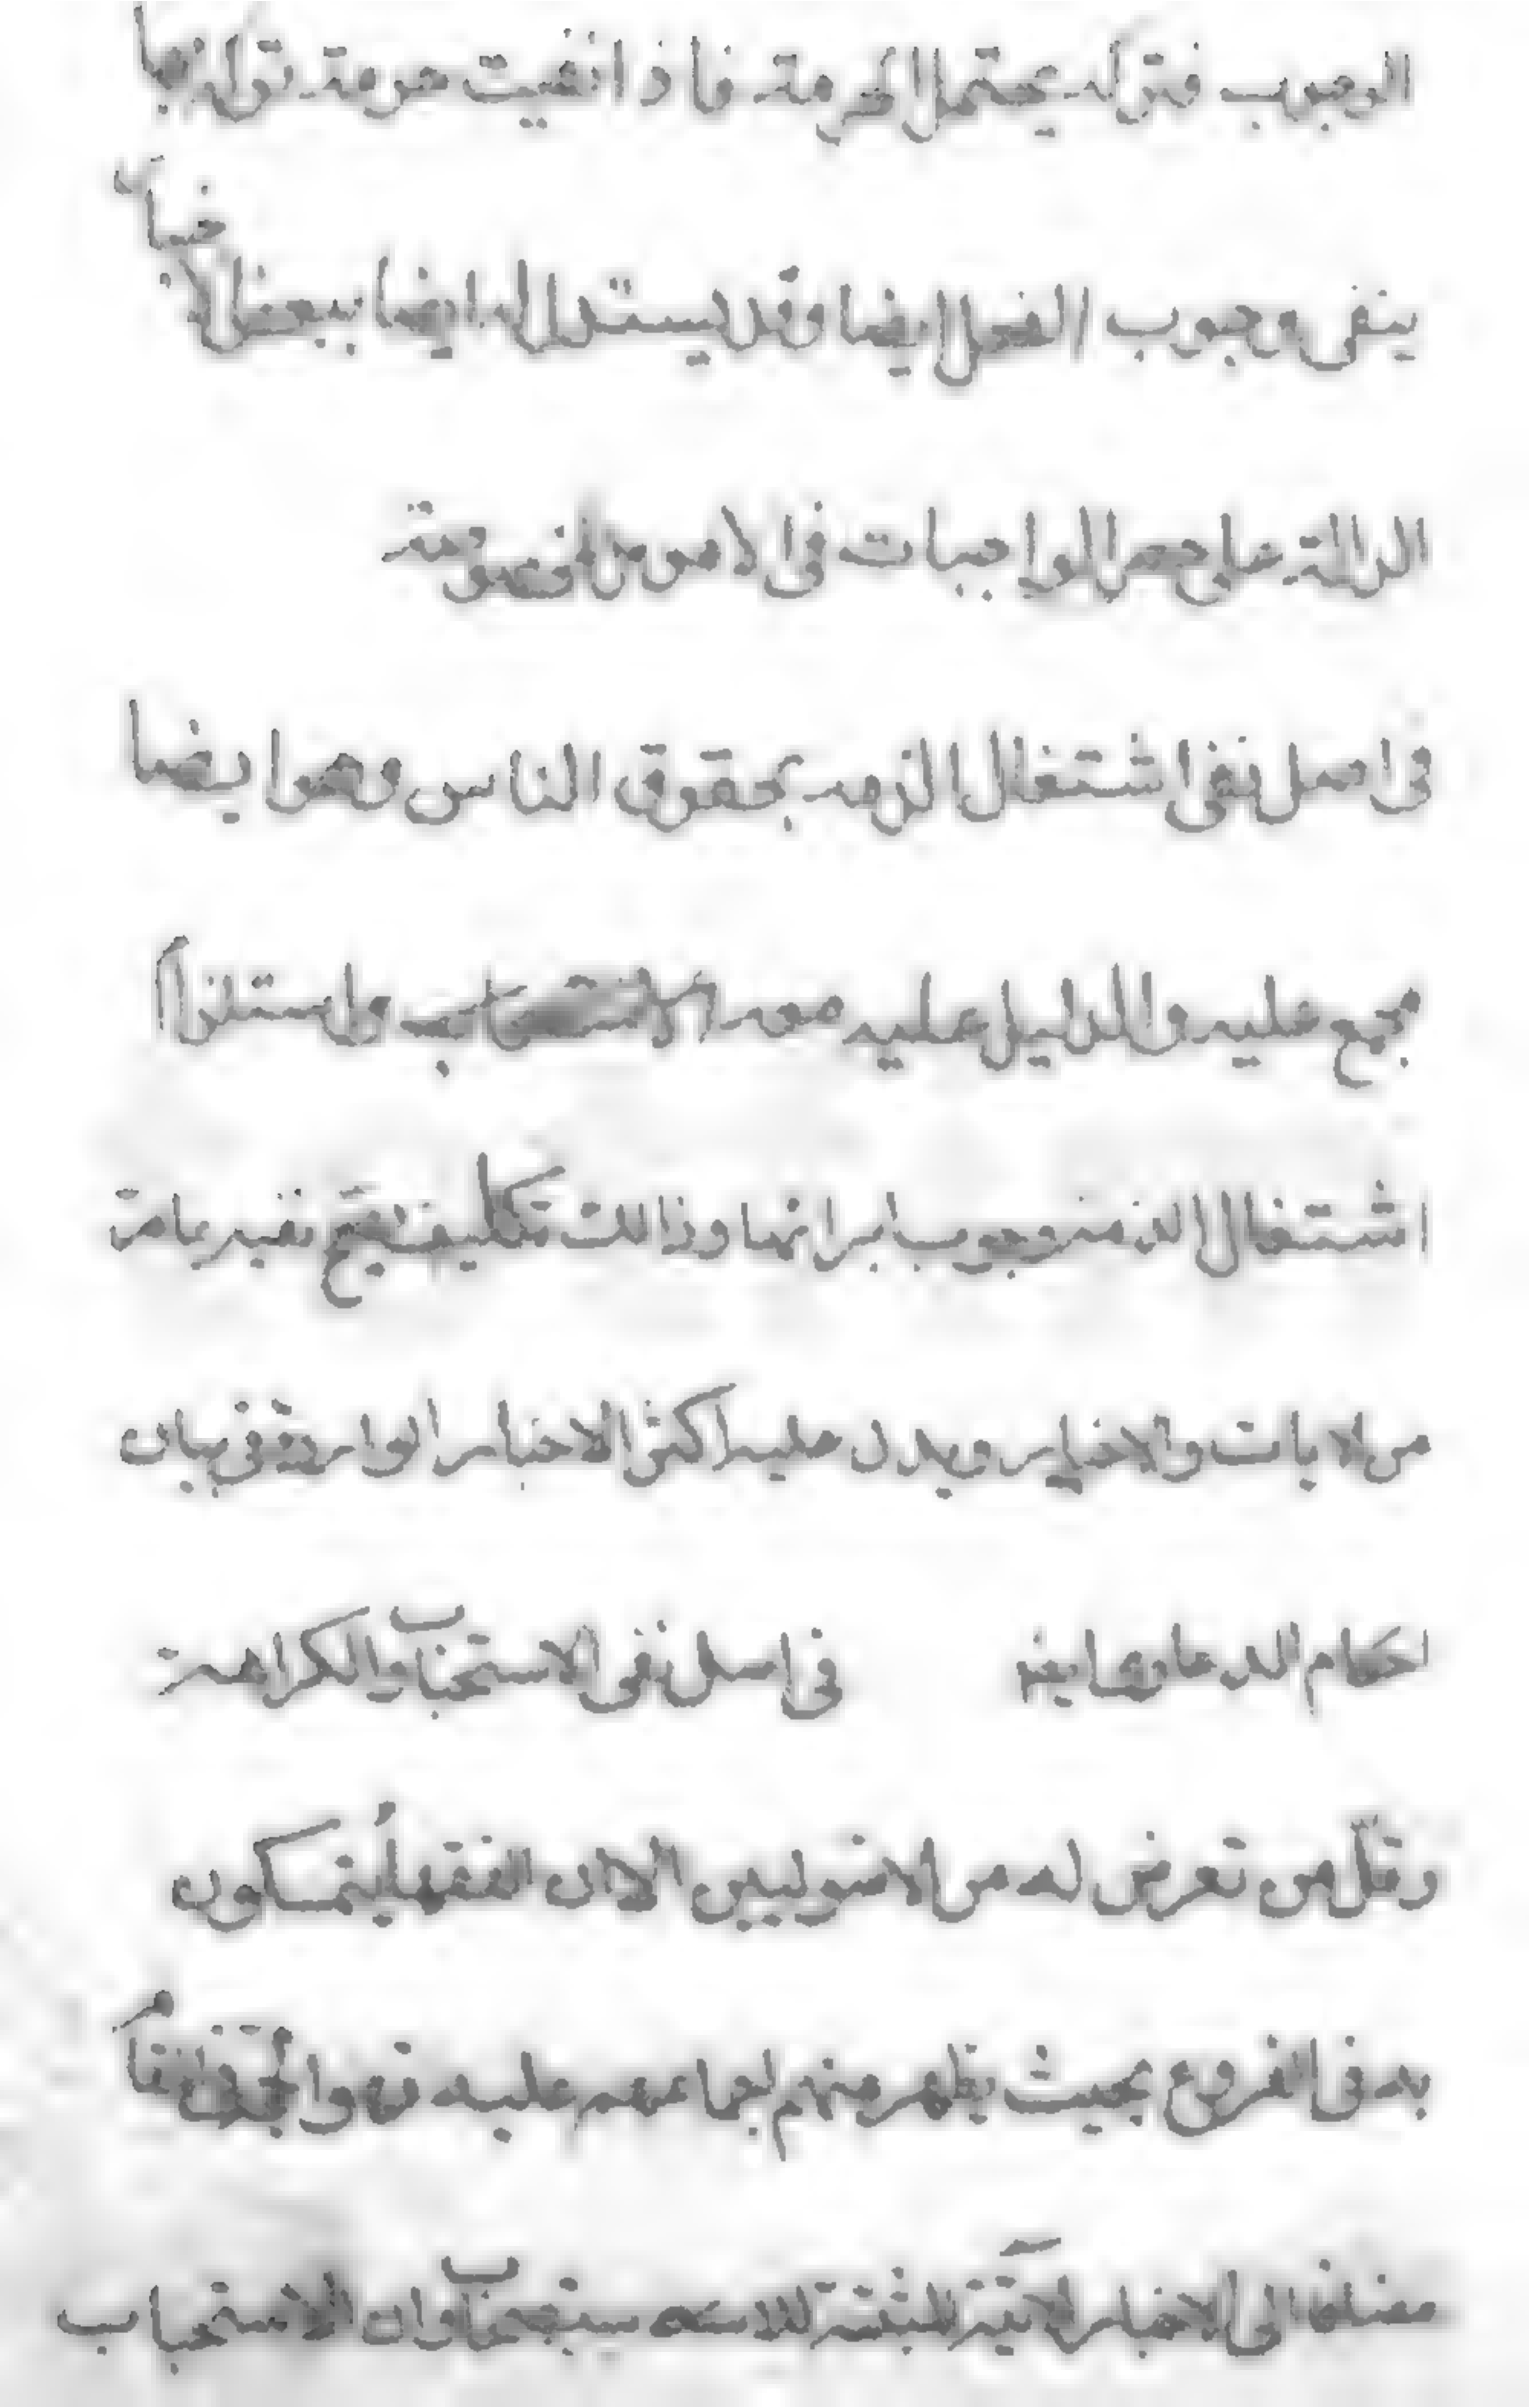 الوجوب فتركه يحتمل الحرمة فاذا نفيت حرمة تركه بها
ينفى وجوب الفعل ايضا وقد يستدل له ايضا ببعض الاخبار
الدالة على حصر الواجبات فى الامور المخصوصة
فى اصل نفى اشتغال الذمه بحقوق الناس وهو ايضا
مجمع عليه والدليل عليه معه الاستصحاب واستلزام
اشتغال الذمه وجوب ابرائها وذالك تكليف نفيه بما مرّ
من الايات والاخبار ويدل عليه اكثر الاخبار الواردة فى بيان
احكام الدعاوى فى اصل نفى الاستحباب والكراهة
وقلّ من تعرض له من الاصوليين الا ان الفقهاء يتمسكون
به فى الفروع بحيث يظهر منهم اجماعهم عليه
مضافا الى الاخبار الاتية المثبتة وان الاستحباب